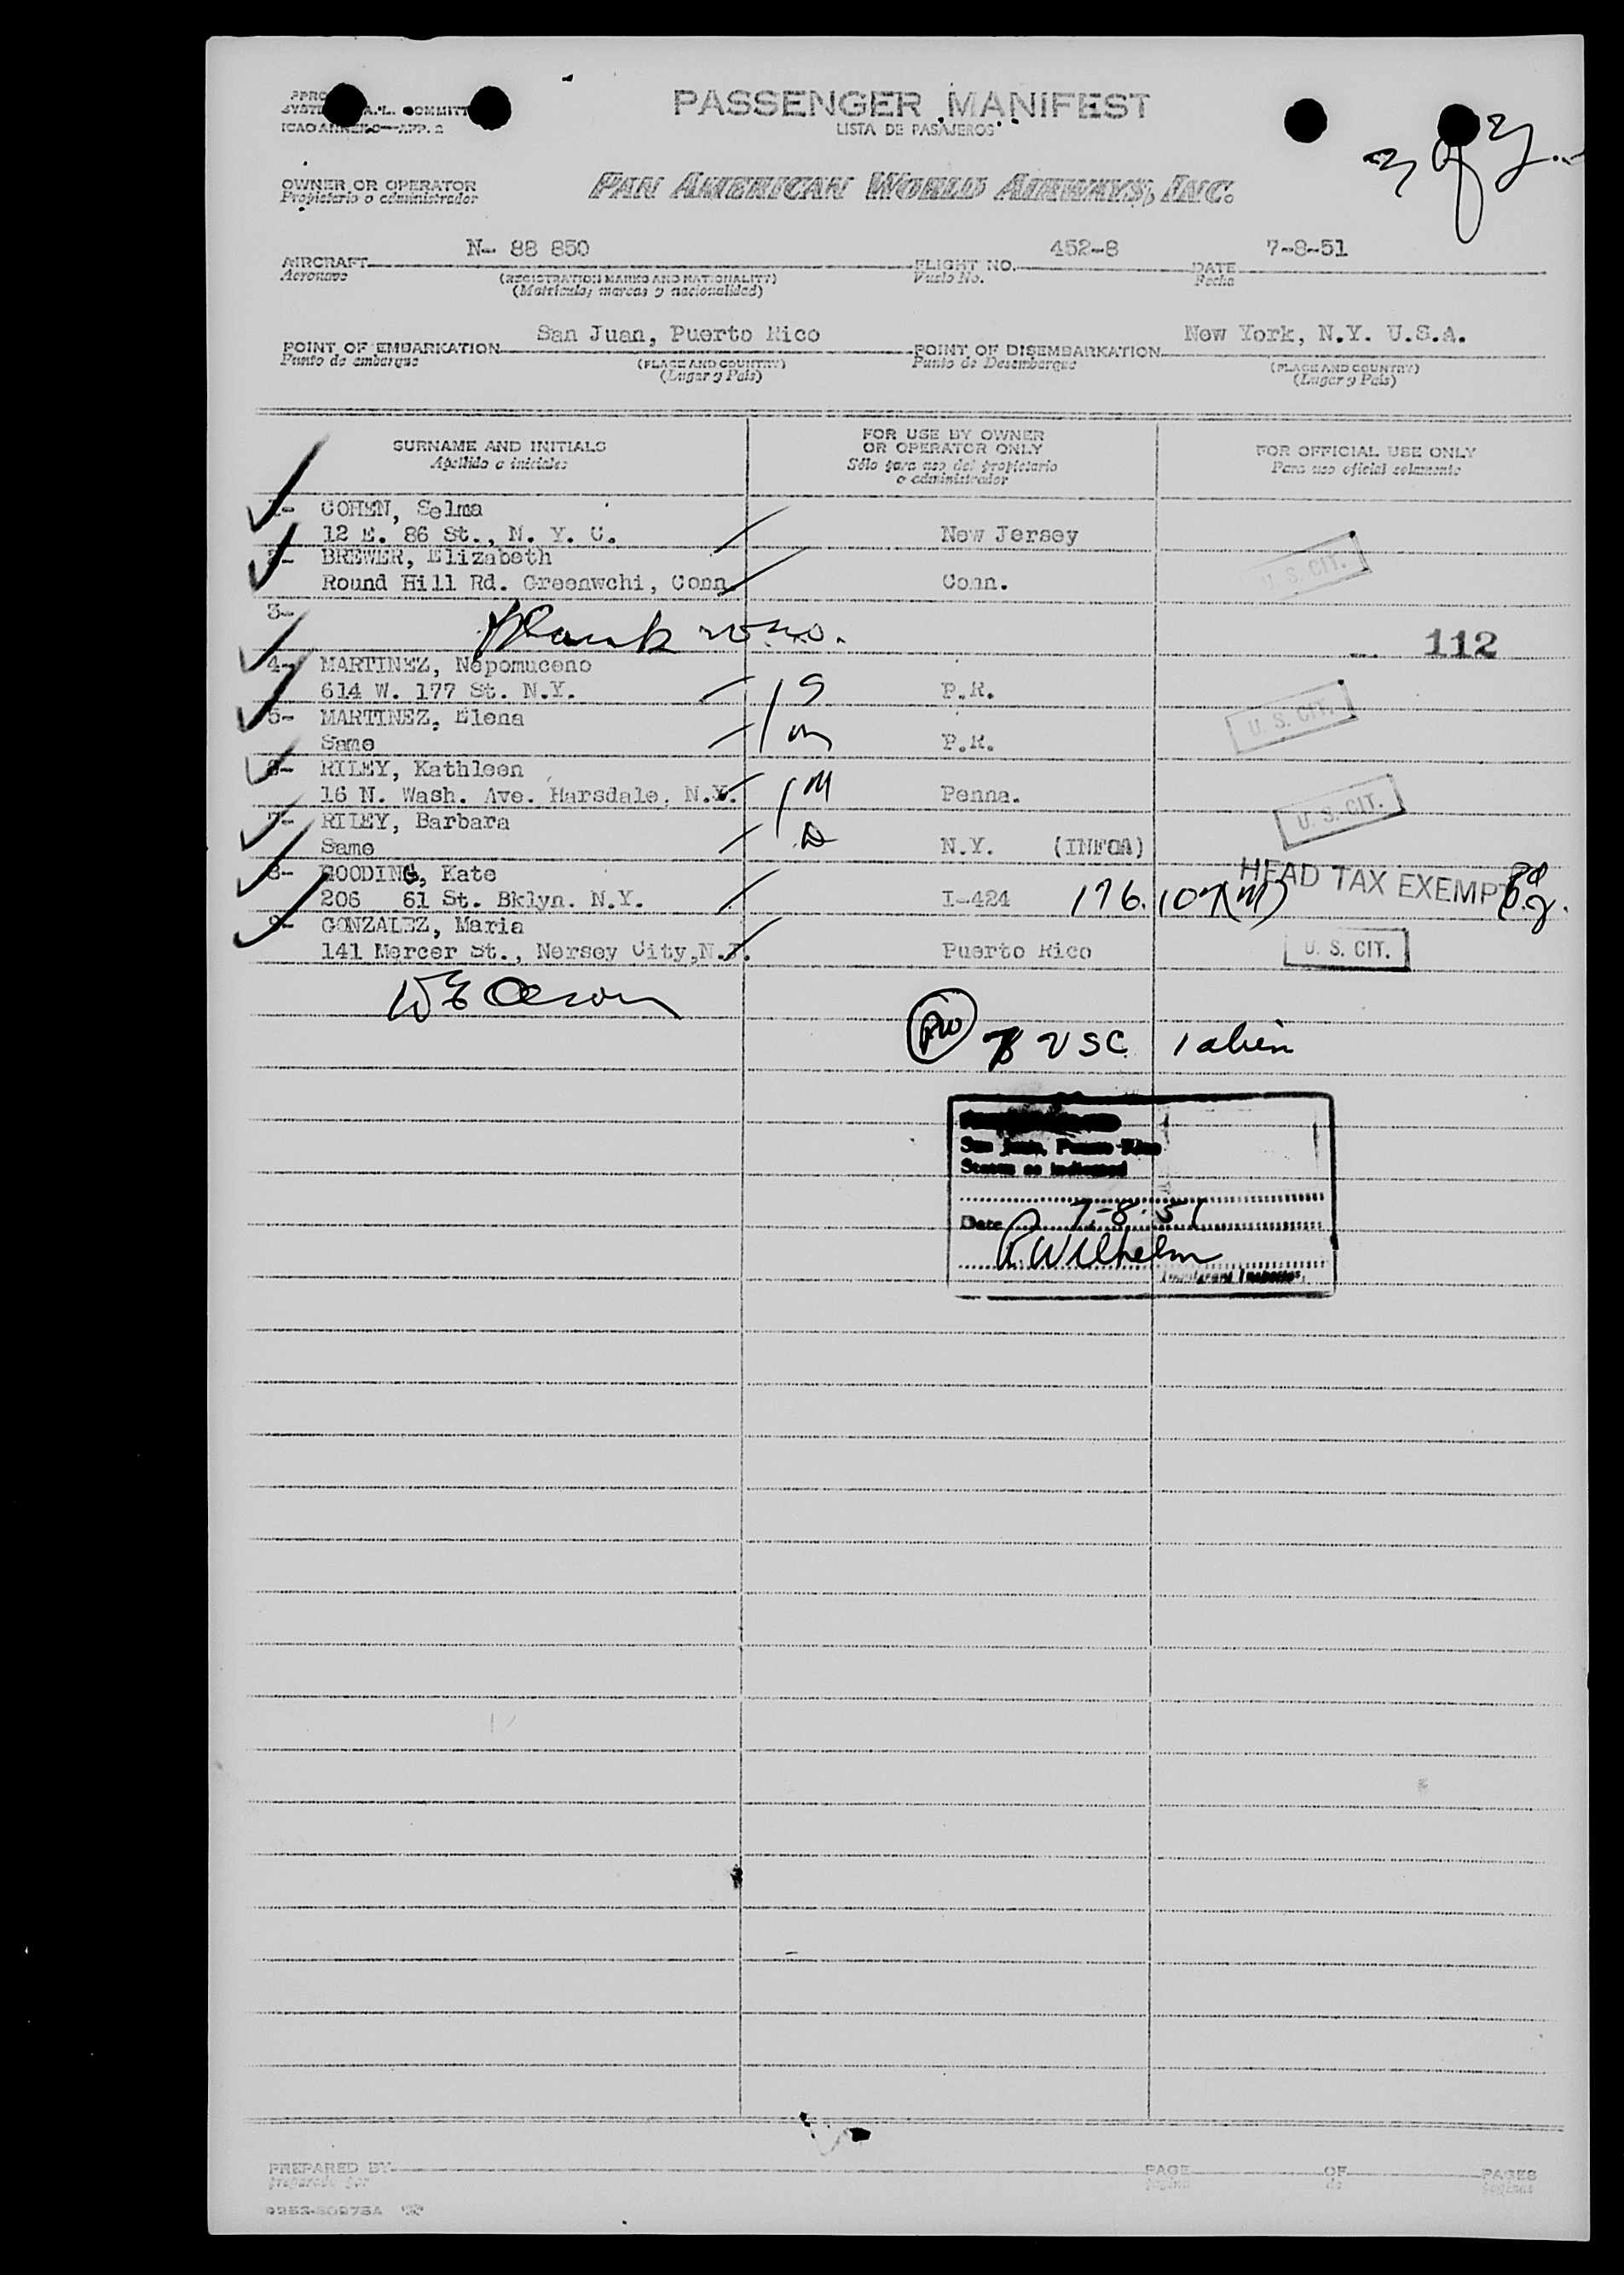 PASSENGER MANIFEST
LISTA DE PASAJEROS
COMMITT
ICAO ANNEX 9—APP. 2
3 of 3
OWNER OR OPERATOR
Propietario o administrador
PAN AMERICAN WORLD AIRWAYS, INC.
N- 88 850 452-8 7-8-51
AIRCRAFT FLIGHT NO. DATE
Aeronave (REGISTRATION MARKS AND NATIONALITY) Vuelo No. Fecha
(Matrícula, marcas y nacionalidad)
San Juan, Puerto Rico New York, N.Y. U.S.A.
POINT OF EMBARKATION POINT OF DISEMBARKATION
Punto de embarque (PLACE AND COUNTRY) Punto de Desembarque (PLACE AND COUNTRY)
(Lugar y País) (Lugar y País)
SURNAME AND INITIALS FOR USE BY OWNER OR OPERATOR ONLY FOR OFFICIAL USE ONLY
Apellido e iniciales Sólo para uso del propietario o administrador Para uso oficial solamente
1- COHEN, Selma
12 E. 86 St., N. Y. C. New Jersey
2- BREWER, Elizabeth U. S. CIT.
Round Hill Rd. Greenwchi, Conn Conn.
3- Blank
112
4- MARTINEZ, Nepomuceno
614 W. 177 St. N.Y. S P.R.
5- MARTINEZ, Elena U. S. CIT.
Same M P.R.
6- RILEY, Kathleen
16 N. Wash. Ave. Harsdale, N.Y. M Penna. U. S. CIT.
7- RILEY, Barbara
Same D N.Y. (INFOA)
8- GOODING, Kate HEAD TAX EXEMPT
206 61 St. Bklyn. N.Y. I-424 176.107(M)
9- GONZALEZ, Maria
141 Mercer St., Nersey City, N.J. Puerto Rico U. S. CIT.
RW USC 1 alien
San Juan, Puerto Rico
Status as indicated
Date 7-8-51
R Wilhelm
Immigrant Inspector
PREPARED BY PAGE OF PAGES
preparado por página de páginas